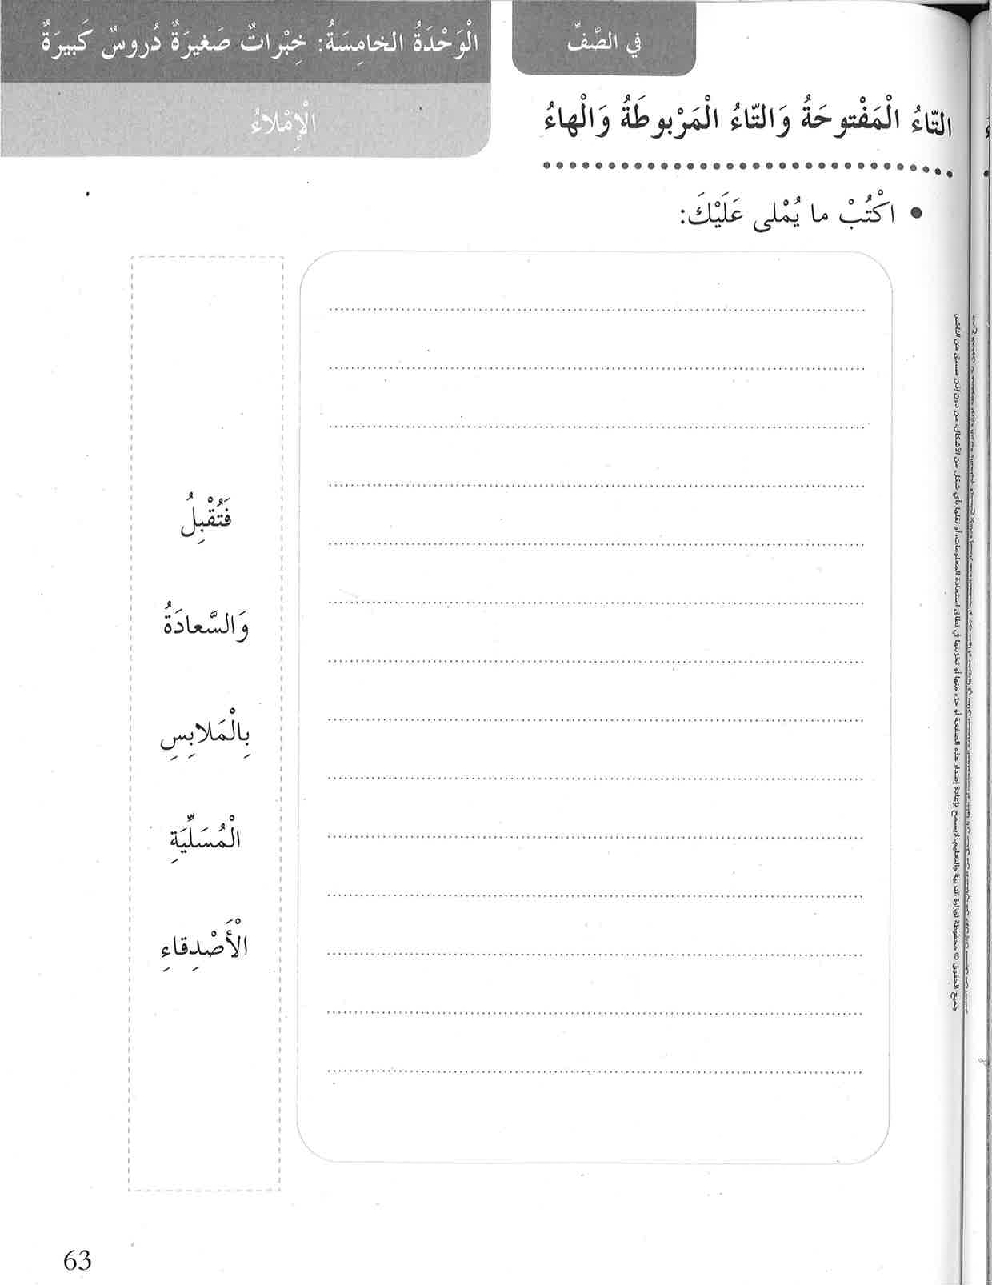 في الصَّفِّ
الْوَحْدَةُ الخامِسَةُ: خِبْراتٌ صَغيرَةٌ دُروسٌ كَبيرَةٌ
الْإِمْلاءُ
التّاءُ الْمَفْتوحَةُ وَالتّاءُ الْمَرْبوطَةُ وَالْهاءُ
• اكْتُبْ ما يُمْلى عَلَيْكَ:
فَتُقْبِلُ
وَالسَّعادَةُ
بِالْمَلابِسِ
الْمُسَلِّيَةِ
الْأَصْدِقاءِ
63